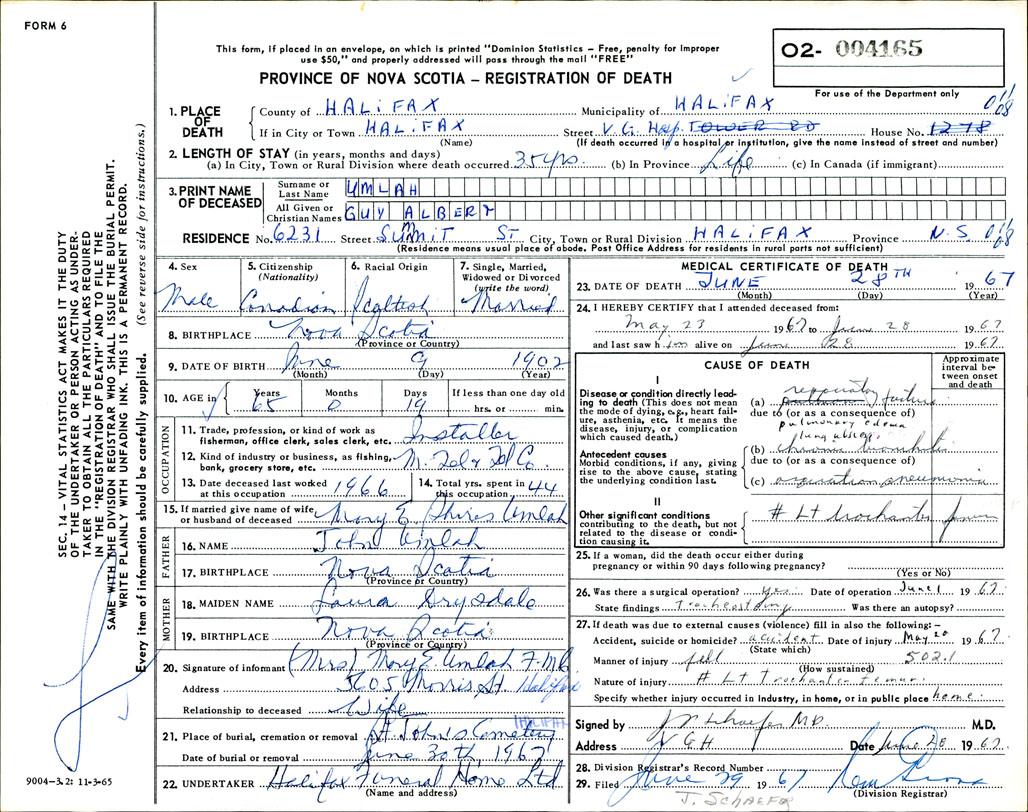 FORM 6
This form, if placed in an envelope, on which is printed "Dominion Statistics – Free, penalty for improper
use $50," and properly addressed will pass through the mail "FREE"
PROVINCE OF NOVA SCOTIA – REGISTRATION OF DEATH
02- 004165
For use of the Department only
1. PLACE OF DEATH
County of HALIFAX Municipality of HALIFAX
If in City or Town HALIFAX Street V.G. Hosp. TOWER RD House No. 1278
(Name) (If death occurred in a hospital or institution, give the name instead of street and number)
2. LENGTH OF STAY (in years, months and days)
(a) In City, Town or Rural Division where death occurred 35 yrs. (b) In Province Life (c) In Canada (if immigrant)
3. PRINT NAME OF DECEASED
Surname or Last Name UMLAH
All Given or Christian Names GUY ALBERT
RESIDENCE No. 6231 Street SUMMIT ST City, Town or Rural Division HALIFAX Province N.S.
(Residence means usual place of abode. Post Office Address for residents in rural parts not sufficient)
4. Sex Male
5. Citizenship (Nationality) Canadian
6. Racial Origin Scottish
7. Single, Married, Widowed or Divorced (write the word) Married
8. BIRTHPLACE Nova Scotia
(Province or Country)
9. DATE OF BIRTH June 9 1902
(Month) (Day) (Year)
10. AGE in Years 65 Months 0 Days 19 If less than one day old hrs. or min.
OCCUPATION
11. Trade, profession, or kind of work as fisherman, office clerk, sales clerk, etc. Installer
12. Kind of industry or business, as fishing, bank, grocery store, etc. M. Tel & Tel Co.
13. Date deceased last worked at this occupation 1966
14. Total yrs. spent in this occupation 44
15. If married give name of wife or husband of deceased Mary E. Shires Umlah
FATHER
16. NAME John Umlah
17. BIRTHPLACE Nova Scotia
(Province or Country)
MOTHER
18. MAIDEN NAME Laura Drysdale
19. BIRTHPLACE Nova Scotia
(Province or Country)
20. Signature of informant (Mrs) Mary E Umlah
Address 5605 Morris St. Halifax
Relationship to deceased Wife
21. Place of burial, cremation or removal St John's Cemetery HALIFAX
Date of burial or removal June 30th 1967
22. UNDERTAKER Halifax Funeral Home Ltd
(Name and address)
MEDICAL CERTIFICATE OF DEATH
23. DATE OF DEATH JUNE 28TH 1967
(Month) (Day) (Year)
24. I HEREBY CERTIFY that I attended deceased from:
May 23 1967 to June 28 1967
and last saw him alive on June 28 1967
CAUSE OF DEATH
Approximate interval between onset and death
I
Disease or condition directly leading to death (This does not mean the mode of dying, e.g., heart failure, asthenia, etc. It means the disease, injury, or complication which caused death.)
(a) respiratory failure
due to (or as a consequence of)
pulmonary edema
lung abscess
Antecedent causes
Morbid conditions, if any, giving rise to the above cause, stating the underlying condition last.
(b) chronic bronchitis
due to (or as a consequence of)
(c) aspiration pneumonia
II
Other significant conditions
contributing to the death, but not related to the disease or condition causing it.
# Lt trochanter femur
25. If a woman, did the death occur either during
pregnancy or within 90 days following pregnancy?
(Yes or No)
26. Was there a surgical operation? yes Date of operation June 1 1967
State findings Was there an autopsy?
27. If death was due to external causes (violence) fill in also the following: –
Accident, suicide or homicide? accident Date of injury May 20 1967
(State which)
Manner of injury fell 502.1
(How sustained)
Nature of injury # Lt Trochanter femur
Specify whether injury occurred in industry, in home, or in public place home
Signed by J Schaefer M.D. M.D.
Address VGH Date June 28 1967
28. Division Registrar's Record Number
29. Filed June 29 1967
(Division Registrar)
J. SCHAEFER
SEC. 14 – VITAL STATISTICS ACT MAKES IT THE DUTY
OF THE UNDERTAKER OR PERSON ACTING AS UNDERTAKER
TO OBTAIN ALL THE PARTICULARS REQUIRED
IN THE "REGISTRATION OF DEATH" AND TO FILE THE
SAME WITH THE DIVISION REGISTRAR WHO SHALL ISSUE THE BURIAL PERMIT.
WRITE PLAINLY WITH UNFADING INK. THIS IS A PERMANENT RECORD.
Every item of information should be carefully supplied. (See reverse side for instructions.)
9004-3.2: 11-3-65